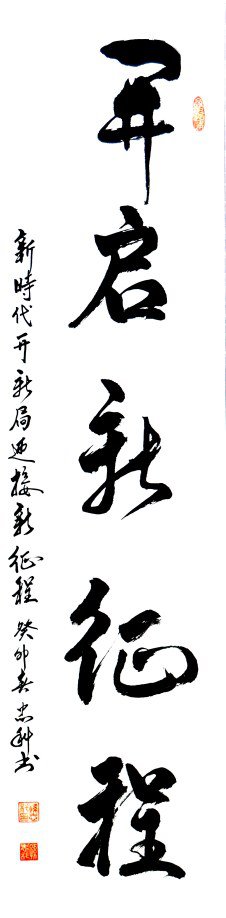 开启新征程
新時代开新局迎接新征程癸卯春忠科书